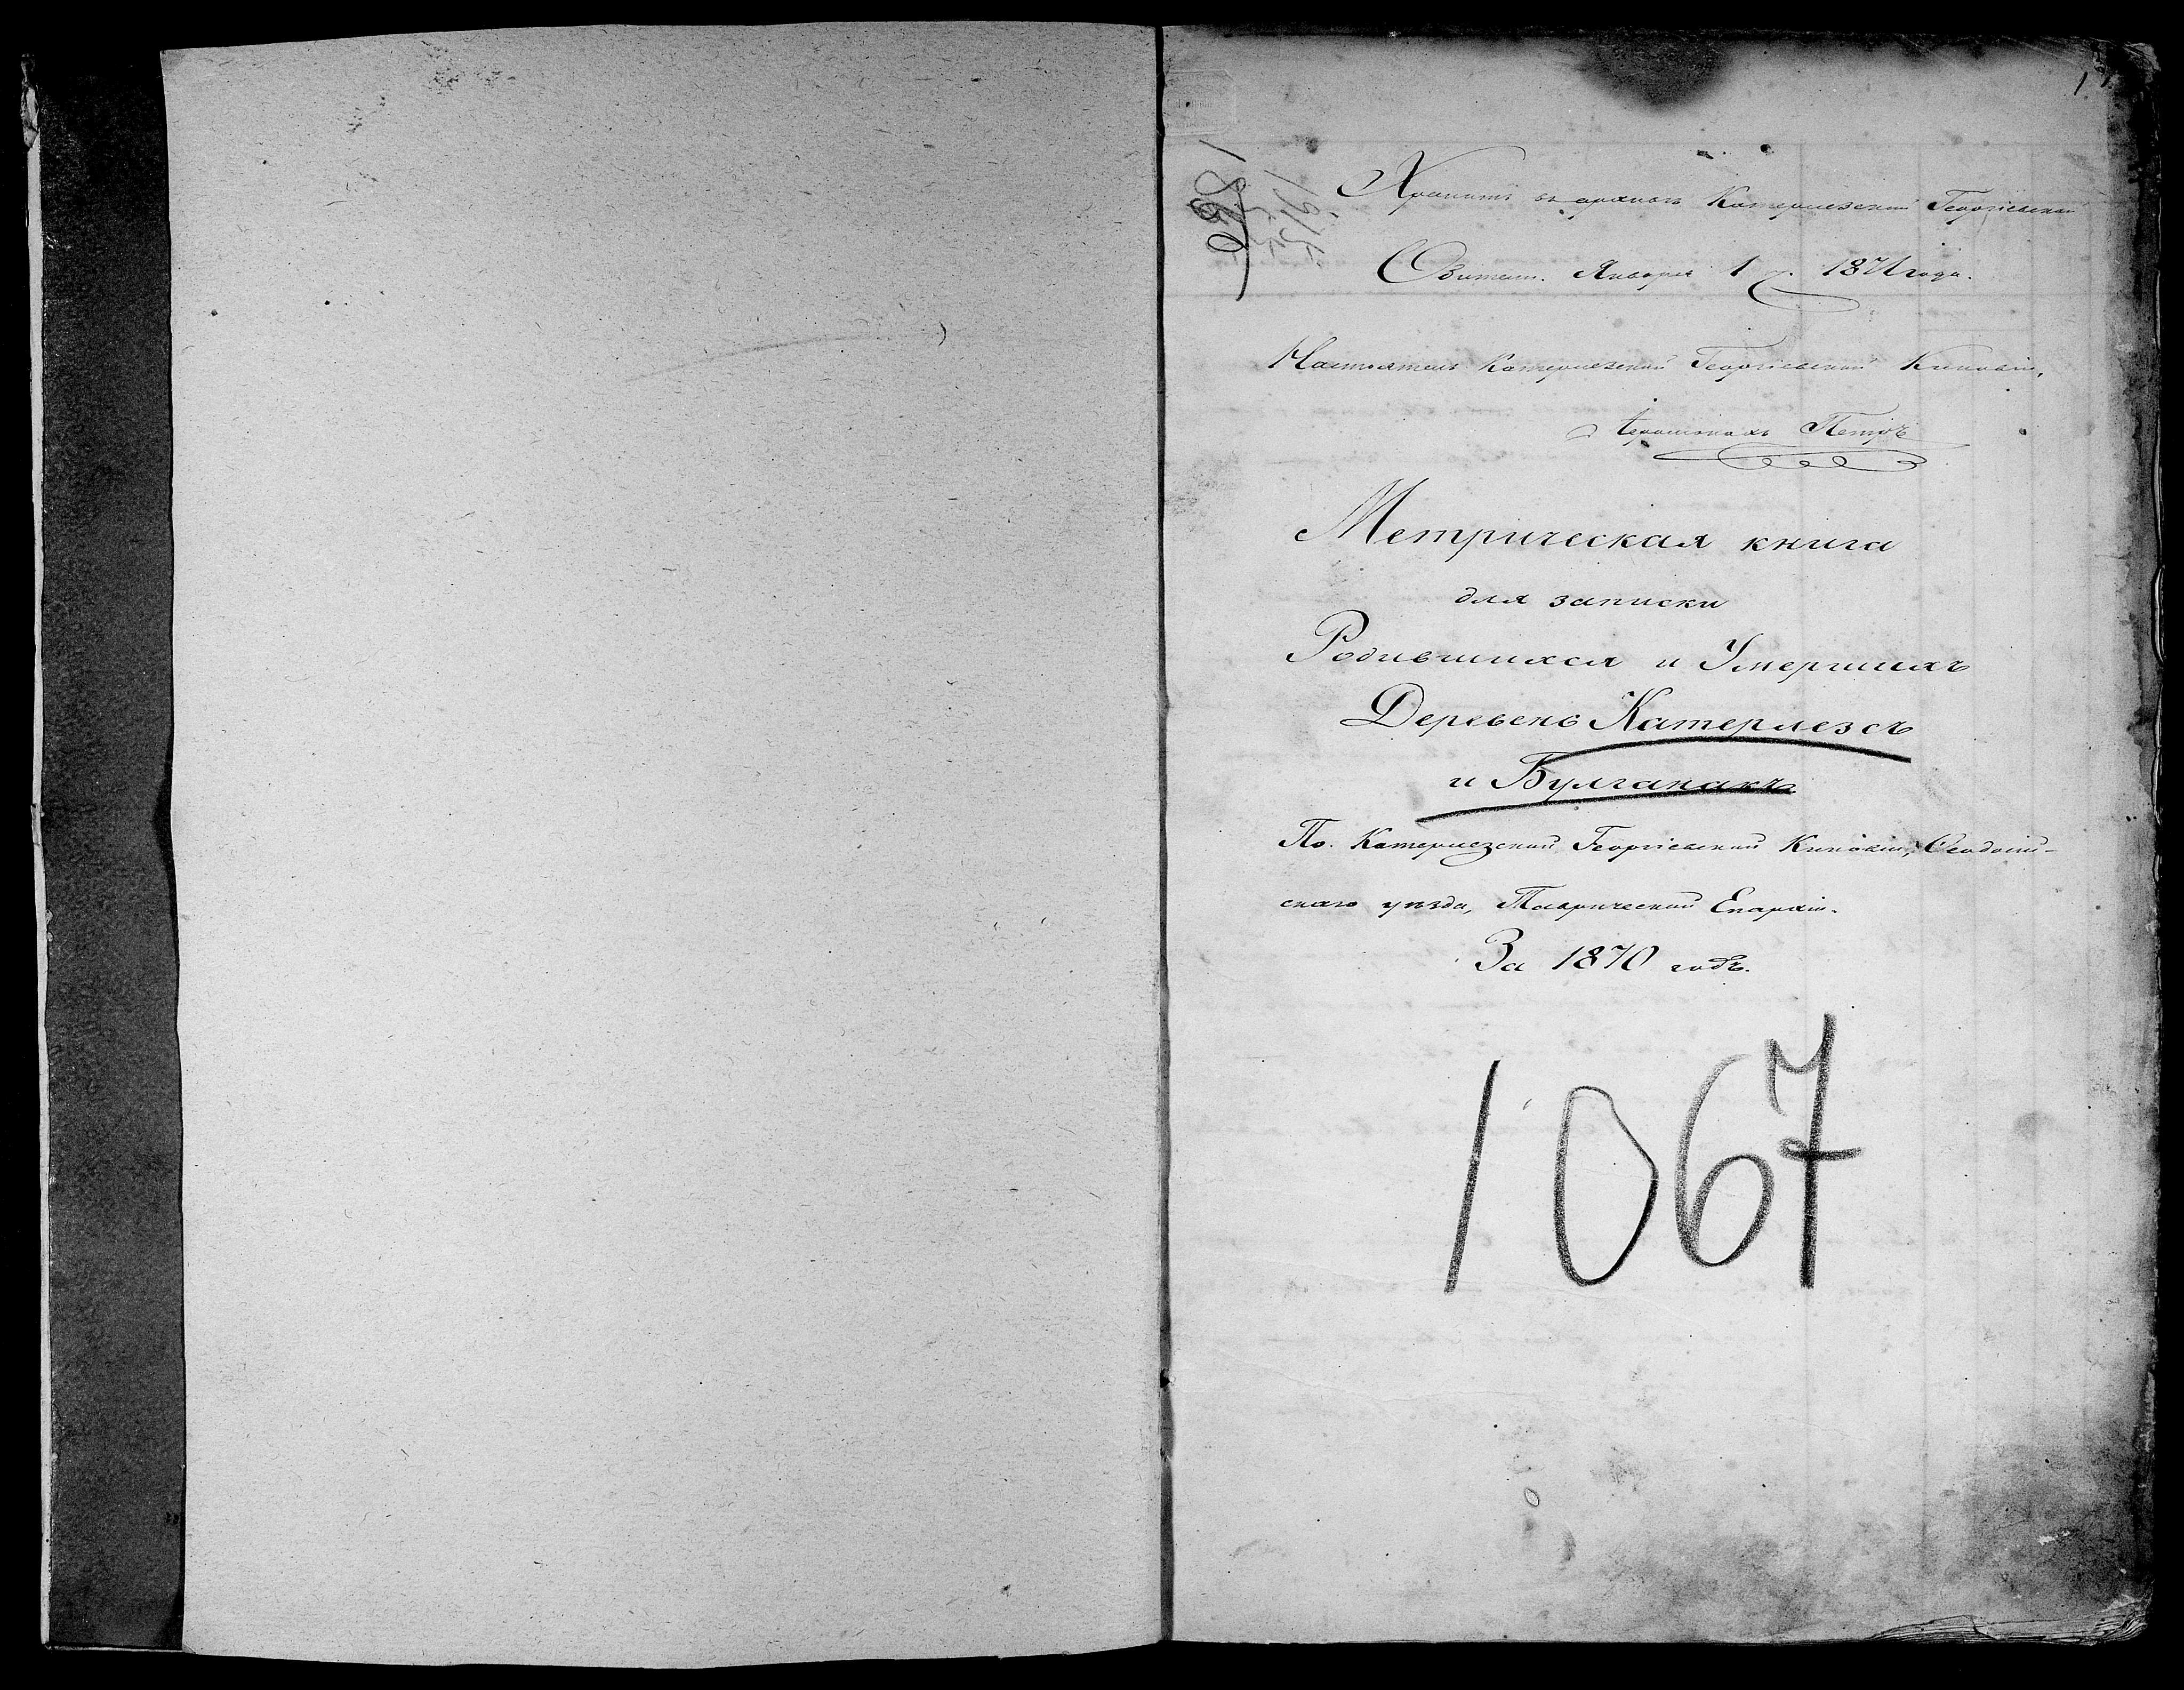 1
1870
Хранить въ архивѣ Катерлезской Георгіевской
Обители. Января 1 д. 1871 года.
Настоятель Катерлезской Георгіевской Киновіи,
Іеромонахъ Петръ
Метрическая книга
для записки
Родившихся и Умершихъ
Деревень Катерлезсъ
и Булганакъ
По Катерлезской Георгіевской Киновіи, Ѳеодосій-
скаго уѣзда, Таврической Епархіи.
За 1870 годъ.
1067